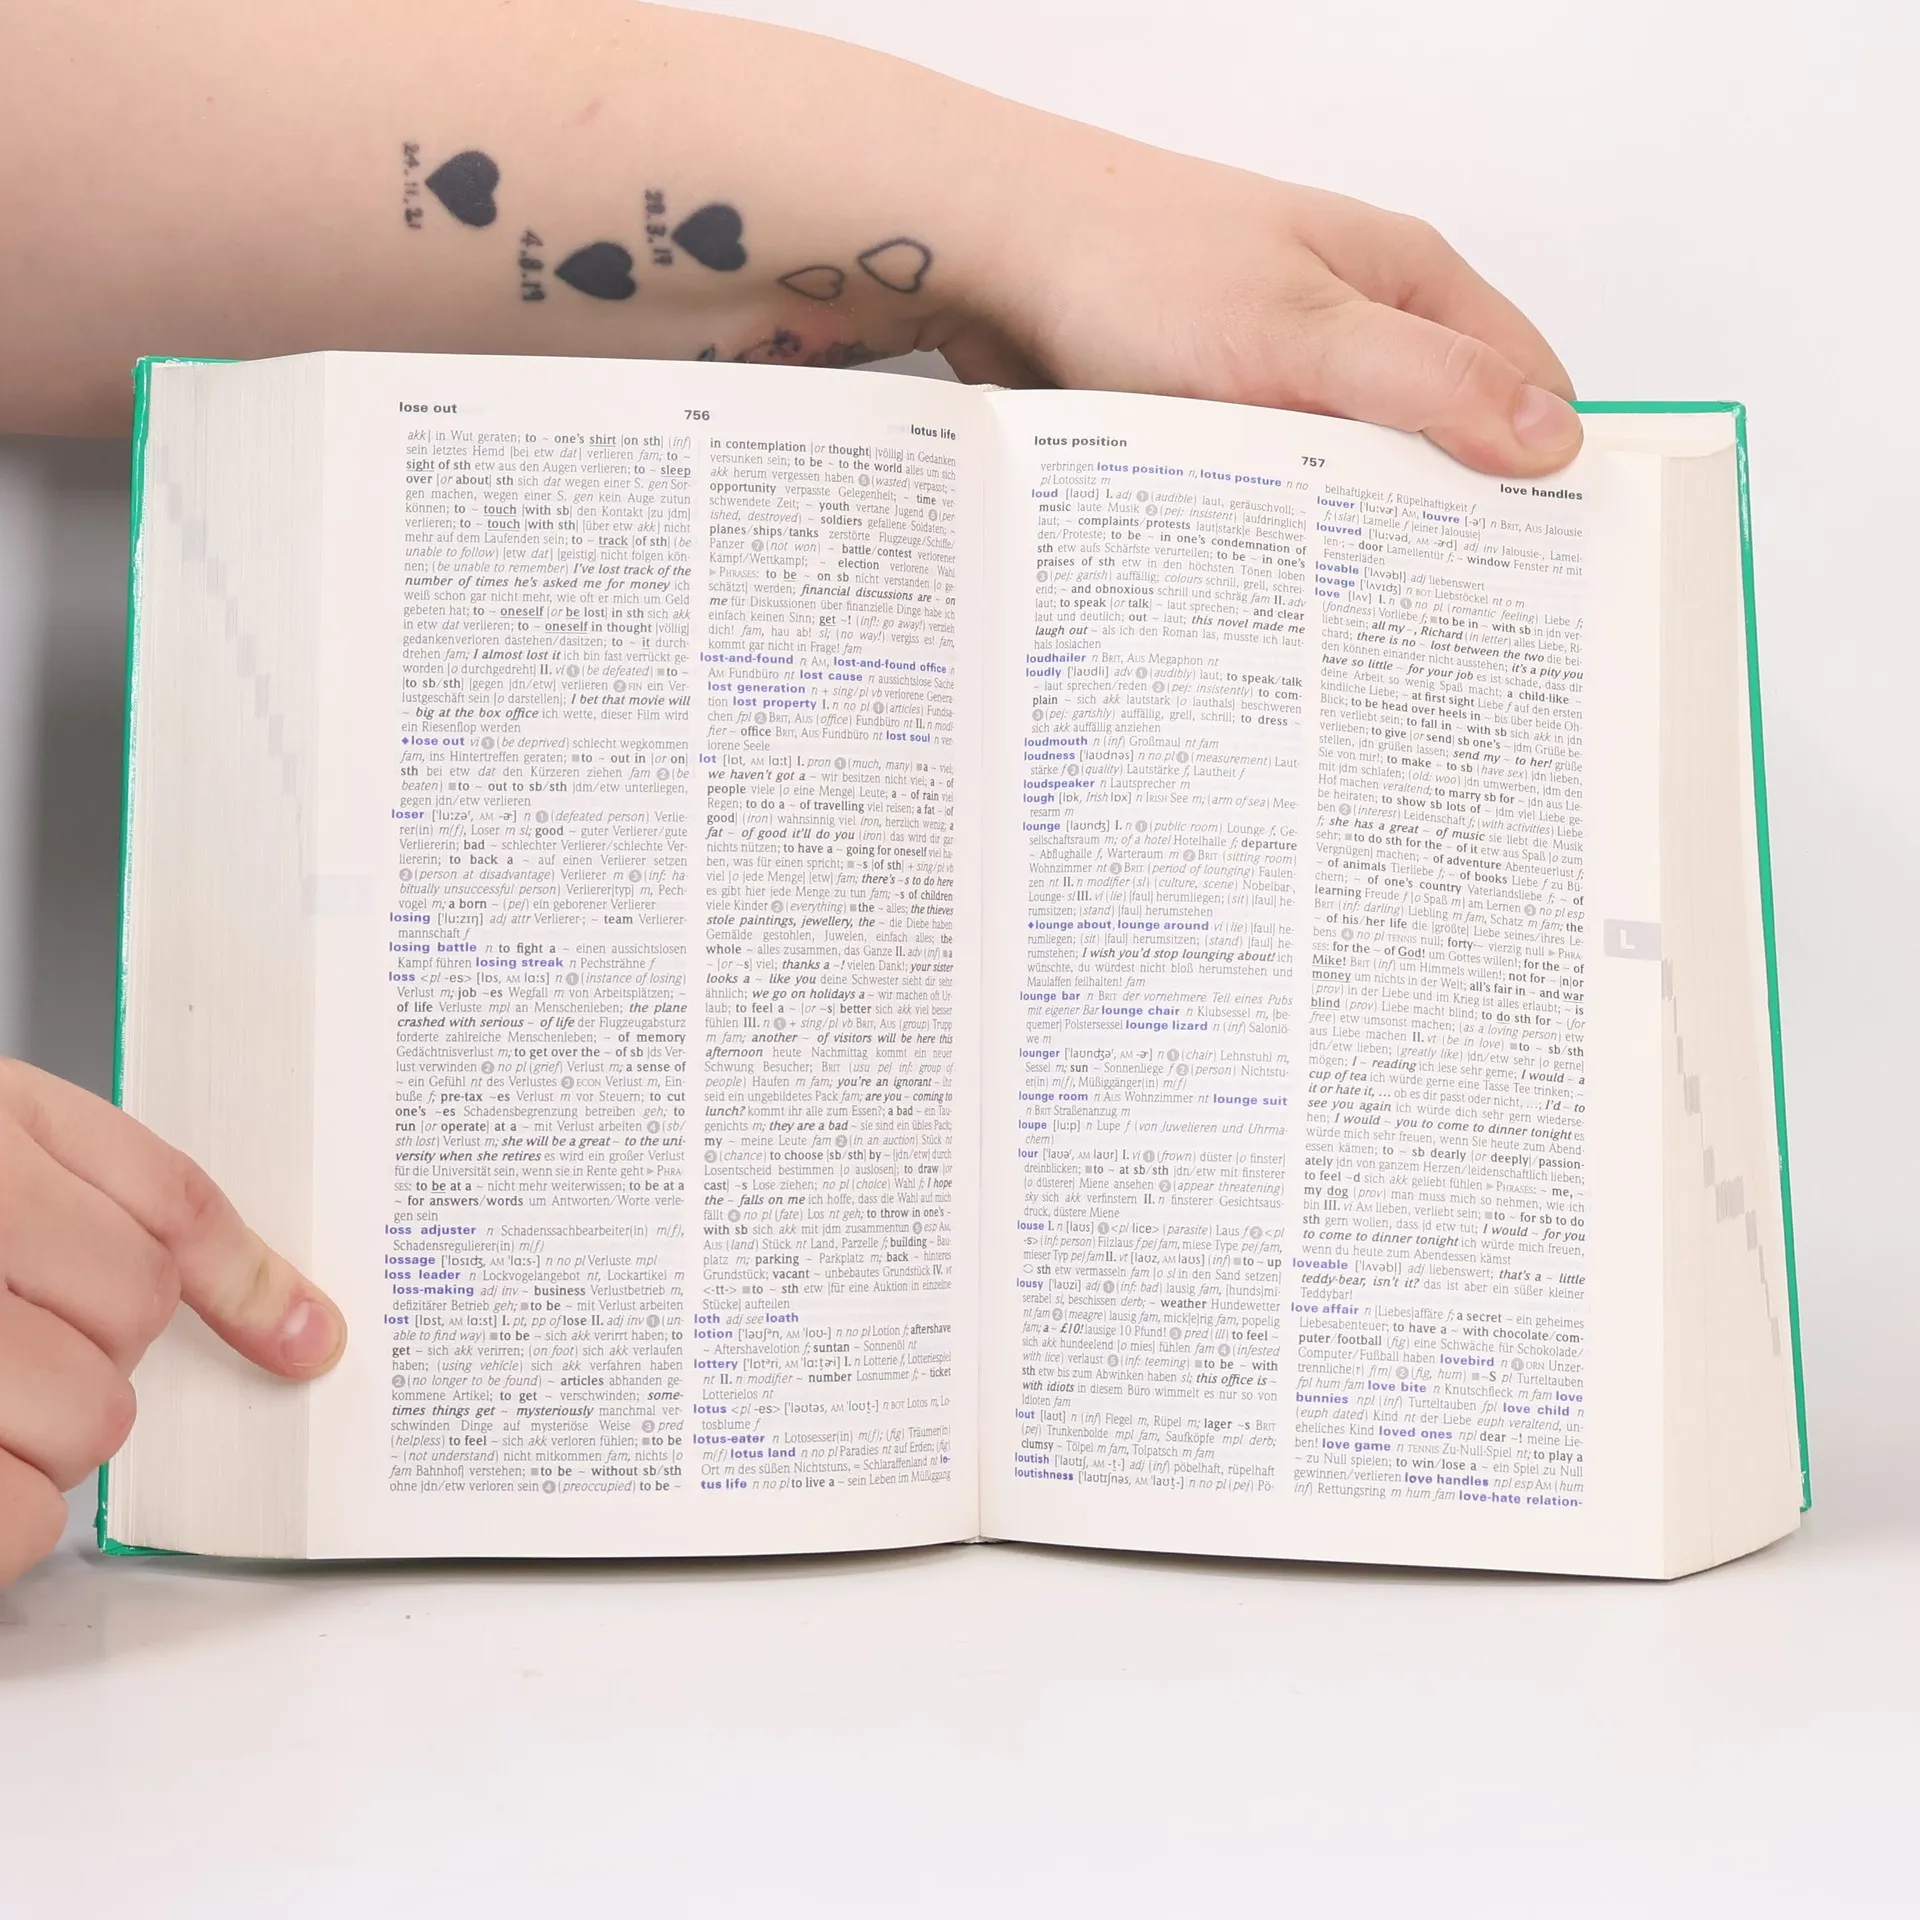 24.11.21
4.8.19
lose out
756
lotus life
akk| in Wut geraten; to ~ one's shirt |on sth| (inf)
sein letztes Hemd |bei etw dat| verlieren fam; to ~
sight of sth etw aus den Augen verlieren; to ~ sleep
over |or about| sth sich dat wegen einer S. gen Sor-
gen machen, wegen einer S. gen kein Auge zutun
können; to ~ touch |with sb| den Kontakt |zu jdm|
verlieren; to ~ touch |with sth| |über etw akk| nicht
mehr auf dem Laufenden sein; to ~ track |of sth| (be
unable to follow) |etw dat| |geistig| nicht folgen kön-
nen; (be unable to remember) I've lost track of the
number of times he's asked me for money ich
weiß schon gar nicht mehr, wie oft er mich um Geld
gebeten hat; to ~ oneself |or be lost| in sth sich akk
in etw dat verlieren; to ~ oneself in thought |völlig|
gedankenverloren dastehen/dasitzen; to ~ it durch-
drehen fam; I almost lost it ich bin fast verrückt ge-
worden |o durchgedreht| II. vi ① (be defeated) ■to ~
|to sb/sth| |gegen jdn/etw| verlieren ② FIN ein Ver-
lustgeschäft sein |o darstellen|; I bet that movie will
~ big at the box office ich wette, dieser Film wird
ein Riesenflop werden
◆lose out vi ① (be deprived) schlecht wegkommen
fam, ins Hintertreffen geraten; ■to ~ out in |or on|
sth bei etw dat den Kürzeren ziehen fam ② (be
beaten) ■to ~ out to sb/sth jdm/etw unterliegen,
gegen jdn/etw verlieren
loser ['lu:zəʳ, AM -ɚ] n ① (defeated person) Verlie-
rer(in) m(f), Loser m sl; good ~ guter Verlierer/gute
Verliererin; bad ~ schlechter Verlierer/schlechte Ver-
liererin; to back a ~ auf einen Verlierer setzen
② (person at disadvantage) Verlierer m ③ (inf: ha-
bitually unsuccessful person) Verlierer|typ| m, Pech-
vogel m; a born ~ (pej) ein geborener Verlierer
losing ['lu:zɪŋ] adj attr Verlierer-; ~ team Verlierer-
mannschaft f
losing battle n to fight a ~ einen aussichtslosen
Kampf führen losing streak n Pechsträhne f
loss <pl -es> [lɒs, AM lɑ:s] n ① (instance of losing)
Verlust m; job ~es Wegfall m von Arbeitsplätzen; ~
of life Verluste mpl an Menschenleben; the plane
crashed with serious ~ of life der Flugzeugabsturz
forderte zahlreiche Menschenleben; ~ of memory
Gedächtnisverlust m; to get over the ~ of sb jds Ver-
lust verwinden ② no pl (grief) Verlust m; a sense of
~ ein Gefühl nt des Verlustes ③ ECON Verlust m, Ein-
buße f; pre-tax ~es Verlust m vor Steuern; to cut
one's ~es Schadensbegrenzung betreiben geh; to
run |or operate| at a ~ mit Verlust arbeiten ④ (sb/
sth lost) Verlust m; she will be a great ~ to the uni-
versity when she retires es wird ein großer Verlust
für die Universität sein, wenn sie in Rente geht ▶ PHRA-
SES: to be at a ~ nicht mehr weiterwissen; to be at a
~ for answers/words um Antworten/Worte verle-
gen sein
loss adjuster n Schadenssachbearbeiter(in) m(f),
Schadensregulierer(in) m(f)
lossage ['lɒsɪdʒ, AM 'lɑ:s-] n no pl Verluste mpl
loss leader n Lockvogelangebot nt, Lockartikel m
loss-making adj inv ~ business Verlustbetrieb m,
defizitärer Betrieb geh; ■to be ~ mit Verlust arbeiten
lost [lɒst, AM lɑ:st] I. pt, pp of lose II. adj inv ① (un-
able to find way) ■to be ~ sich akk verirrt haben; to
get ~ sich akk verirren; (on foot) sich akk verlaufen
haben; (using vehicle) sich akk verfahren haben
② (no longer to be found) ~ articles abhanden ge-
kommene Artikel; to get ~ verschwinden; some-
times things get ~ mysteriously manchmal ver-
schwinden Dinge auf mysteriöse Weise ③ pred
(helpless) to feel ~ sich akk verloren fühlen; ■to be
~ (not understand) nicht mitkommen fam, nichts |o
fam Bahnhof| verstehen; ■to be ~ without sb/sth
ohne jdn/etw verloren sein ④ (preoccupied) to be ~
in contemplation |or thought| |völlig| in Gedanken
versunken sein; to be ~ to the world alles um sich
akk herum vergessen haben ⑤ (wasted) verpasst; ~
opportunity verpasste Gelegenheit; ~ time ver-
schwendete Zeit; ~ youth vertane Jugend ⑥ (per-
ished, destroyed) ~ soldiers gefallene Soldaten; ~
planes/ships/tanks zerstörte Flugzeuge/Schiffe/
Panzer ⑦ (not won) ~ battle/contest verlorener
Kampf/Wettkampf; ~ election verlorene Wahl
▶ PHRASES: to be ~ on sb nicht verstanden |o ge-
schätzt| werden; financial discussions are ~ on
me für Diskussionen über finanzielle Dinge habe ich
einfach keinen Sinn; get ~! (inf!: go away!) verzieh
dich! fam, hau ab! sl; (no way!) vergiss es! fam,
kommt gar nicht in Frage! fam
lost-and-found n AM, lost-and-found office n
AM Fundbüro nt lost cause n aussichtslose Sache
lost generation n + sing/pl vb verlorene Genera-
tion lost property I. n no pl ① (articles) Fundsa-
chen fpl ② BRIT, AUS (office) Fundbüro nt II. n modi-
fier ~ office BRIT, AUS Fundbüro nt lost soul n ver-
lorene Seele
lot [lɒt, AM lɑ:t] I. pron ① (much, many) ■a ~ viel;
we haven't got a ~ wir besitzen nicht viel; a ~ of
people viele |o eine Menge| Leute; a ~ of rain viel
Regen; to do a ~ of travelling viel reisen; a fat ~ |of
good| (iron) wahnsinnig viel iron, herzlich wenig; a
fat ~ of good it'll do you (iron) das wird dir gar
nichts nützen; to have a ~ going for oneself viel ha-
ben, was für einen spricht; ■~s |of sth| + sing/pl vb
viel |o jede Menge| |etw| fam; there's ~s to do here
es gibt hier jede Menge zu tun fam; ~s of children
viele Kinder ② (everything) ■the ~ alles; the thieves
stole paintings, jewellery, the ~ die Diebe haben
Gemälde gestohlen, Juwelen, einfach alles; the
whole ~ alles zusammen, das Ganze II. adv (inf) ■a
~ |or ~s| viel; thanks a ~! vielen Dank!; your sister
looks a ~ like you deine Schwester sieht dir sehr
ähnlich; we go on holidays a ~ wir machen oft Ur-
laub; to feel a ~ |or ~s| better sich akk viel besser
fühlen III. n ① + sing/pl vb BRIT, AUS (group) Trupp
m fam; another ~ of visitors will be here this
afternoon heute Nachmittag kommt ein neuer
Schwung Besucher; BRIT (usu pej inf: group of
people) Haufen m fam; you're an ignorant ~ ihr
seid ein ungebildetes Pack fam; are you ~ coming to
lunch? kommt ihr alle zum Essen?; a bad ~ ein Tau-
genichts m; they are a bad ~ sie sind ein übles Pack;
my ~ meine Leute fam ② (in an auction) Stück nt
③ (chance) to choose |sb/sth| by ~ |jdn/etw| durch
Losentscheid bestimmen |o auslosen|; to draw |or
cast| ~s Lose ziehen; no pl (choice) Wahl f; I hope
the ~ falls on me ich hoffe, dass die Wahl auf mich
fällt ④ no pl (fate) Los nt geh; to throw in one's ~
with sb sich akk mit jdm zusammentun ⑤ esp AM,
AUS (land) Stück nt Land, Parzelle f; building ~ Bau-
platz m; parking ~ Parkplatz m; back ~ hinteres
Grundstück; vacant ~ unbebautes Grundstück IV. vt
<-tt-> ■to ~ sth etw |für eine Auktion in einzelne
Stücke| aufteilen
loth adj see loath
lotion ['ləʊʃᵊn, AM 'loʊ-] n no pl Lotion f; aftershave
~ Aftershavelotion f; suntan ~ Sonnenöl nt
lottery ['lɒtᵊri, AM 'lɑ:t̬ɚi] I. n Lotterie f, Lotteriespiel
nt II. n modifier ~ number Losnummer f; ~ ticket
Lotterielos nt
lotus <pl -es> ['ləʊtəs, AM 'loʊt̬-] n BOT Lotos m, Lo-
tosblume f
lotus-eater n Lotosesser(in) m(f); (fig) Träumer(in)
m(f) lotus land n no pl Paradies nt auf Erden; (fig)
Ort m des süßen Nichtstuns, = Schlaraffenland nt lo-
tus life n no pl to live a ~ sein Leben im Müßiggang
lotus position
757
love handles
verbringen lotus position n, lotus posture n no
pl Lotossitz m
loud [laʊd] I. adj ① (audible) laut, geräuschvoll; ~
music laute Musik ② (pej: insistent) |aufdringlich|
laut; ~ complaints/protests laut|stark|e Beschwer-
den/Proteste; to be ~ in one's condemnation of
sth etw aufs Schärfste verurteilen; to be ~ in one's
praises of sth etw in den höchsten Tönen loben
③ (pej: garish) auffällig; colours schrill, grell, schrei-
end; ~ and obnoxious schrill und schräg fam II. adv
laut; to speak |or talk| ~ laut sprechen; ~ and clear
laut und deutlich; out ~ laut; this novel made me
laugh out ~ als ich den Roman las, musste ich laut-
hals loslachen
loudhailer n BRIT, AUS Megaphon nt
loudly ['laʊdli] adv ① (audibly) laut; to speak/talk
~ laut sprechen/reden ② (pej: insistently) to com-
plain ~ sich akk lautstark |o lauthals| beschweren
③ (pej: garishly) auffällig, grell, schrill; to dress ~
sich akk auffällig anziehen
loudmouth n (inf) Großmaul nt fam
loudness ['laʊdnəs] n no pl ① (measurement) Laut-
stärke f ② (quality) Lautstärke f, Lautheit f
loudspeaker n Lautsprecher m
lough [lɒk, Irish lɒx] n IRISH See m; (arm of sea) Mee-
resarm m
lounge [laʊndʒ] I. n ① (public room) Lounge f, Ge-
sellschaftsraum m; of a hotel Hotelhalle f; departure
~ Abflughalle f, Warteraum m ② BRIT (sitting room)
Wohnzimmer nt ③ BRIT (period of lounging) Faulen-
zen nt II. n modifier (sl) (culture, scene) Nobelbar-,
Lounge- sl III. vi (lie) |faul| herumliegen; (sit) |faul| he-
rumsitzen; (stand) |faul| herumstehen
◆lounge about, lounge around vi (lie) |faul| he-
rumliegen; (sit) |faul| herumsitzen; (stand) |faul| he-
rumstehen; I wish you'd stop lounging about! ich
wünschte, du würdest nicht bloß herumstehen und
Maulaffen feilhalten! fam
lounge bar n BRIT der vornehmere Teil eines Pubs
mit eigener Bar lounge chair n Klubsessel m, |be-
quemer| Polstersessel lounge lizard n (inf) Salonlö-
we m
lounger ['laʊndʒəʳ, AM -ɚ] n ① (chair) Lehnstuhl m,
Sessel m; sun ~ Sonnenliege f ② (person) Nichtstu-
er(in) m(f), Müßiggänger(in) m(f)
lounge room n AUS Wohnzimmer nt lounge suit
n BRIT Straßenanzug m
loupe [lu:p] n Lupe f (von Juwelieren und Uhrma-
chern)
lour [laʊəʳ, AM laʊr] I. vi ① (frown) düster |o finster|
dreinblicken; ■to ~ at sb/sth jdn/etw mit finsterer
|o düsterer| Miene ansehen ② (appear threatening)
sky sich akk verfinstern II. n finsterer Gesichtsaus-
druck, düstere Miene
louse I. n [laʊs] ① <pl lice> (parasite) Laus f ② <pl
-s> (inf: person) Filzlaus f pej fam, miese Type pej fam,
mieser Typ pej fam II. vt [laʊz, AM laʊs] (inf) ■to ~ up
sth etw vermasseln fam |o sl in den Sand setzen|
lousy ['laʊzi] adj ① (inf: bad) lausig fam, |hunds|mi-
serabel sl, beschissen derb; ~ weather Hundewetter
nt fam ② (meagre) lausig fam, mick|e|rig fam, popelig
fam; a ~ £10! lausige 10 Pfund! ③ pred (ill) to feel ~
sich akk hundeelend |o mies| fühlen fam ④ (infested
with lice) verlaust ⑤ (inf: teeming) ■to be ~ with
sth etw bis zum Abwinken haben sl; this office is ~
with idiots in diesem Büro wimmelt es nur so von
Idioten fam
lout [laʊt] n (inf) Flegel m, Rüpel m; lager ~s BRIT
(pej) Trunkenbolde mpl fam, Saufköpfe mpl derb;
clumsy ~ Tölpel m fam, Tolpatsch m fam
loutish ['laʊtɪʃ, AM -t̬-] adj (inf) pöbelhaft, rüpelhaft
loutishness ['laʊtɪʃnəs, AM 'laʊt̬-] n no pl (pej) Pö-
belhaftigkeit f, Rüpelhaftigkeit f
louver ['lu:vɚ] AM, louvre [-əʳ] n BRIT, AUS Jalousie
f; (slat) Lamelle f |einer Jalousie|
louvred ['lu:vəd, AM -ɚd] adj inv Jalousie-, Lamel-
len-; ~ door Lamellentür f; ~ window Fenster nt mit
Fensterläden
lovable ['lʌvəbl] adj liebenswert
lovage ['lʌvɪdʒ] n BOT Liebstöckel nt o m
love [lʌv] I. n ① no pl (romantic feeling) Liebe f;
(fondness) Vorliebe f; ■to be in ~ with sb in jdn ver-
liebt sein; all my ~, Richard (in letter) alles Liebe, Ri-
chard; there is no ~ lost between the two die bei-
den können einander nicht ausstehen; it's a pity you
have so little ~ for your job es ist schade, dass dir
deine Arbeit so wenig Spaß macht; a child-like ~
kindliche Liebe; ~ at first sight Liebe f auf den ersten
Blick; to be head over heels in ~ bis über beide Oh-
ren verliebt sein; to fall in ~ with sb sich akk in jdn
verlieben; to give |or send| sb one's ~ jdm Grüße be-
stellen, jdn grüßen lassen; send my ~ to her! grüße
Sie von mir!; to make ~ to sb (have sex) jdn lieben,
mit jdm schlafen; (old: woo) jdn umwerben, jdm den
Hof machen veraltend; to marry sb for ~ jdn aus Lie-
be heiraten; to show sb lots of ~ jdm viel Liebe ge-
ben ② (interest) Leidenschaft f; (with activities) Liebe
f; she has a great ~ of music sie liebt die Musik
sehr; ■to do sth for the ~ of it etw aus Spaß |o zum
Vergnügen| machen; ~ of adventure Abenteuerlust f;
~ of animals Tierliebe f; ~ of books Liebe f zu Bü-
chern; ~ of one's country Vaterlandsliebe f; ~ of
learning Freude f |o Spaß m| am Lernen ③ no pl esp
BRIT (inf: darling) Liebling m fam, Schatz m fam; the
~ of his/her life die |größte| Liebe seines/ihres Le-
bens ④ no pl TENNIS null; forty-~ vierzig null ▶ PHRA-
SES: for the ~ of God! um Gottes willen!; for the ~ of
Mike! BRIT (inf) um Himmels willen!; not for ~ |n|or
money um nichts in der Welt; all's fair in ~ and war
(prov) in der Liebe und im Krieg ist alles erlaubt; ~ is
blind (prov) Liebe macht blind; to do sth for ~ (for
free) etw umsonst machen; (as a loving person) etw
aus Liebe machen II. vt (be in love) ■to ~ sb/sth
jdn/etw lieben; (greatly like) jdn/etw sehr |o gerne|
mögen; I ~ reading ich lese sehr gerne; I would ~ a
cup of tea ich würde gerne eine Tasse Tee trinken; ~
it or hate it, ... ob es dir passt oder nicht, ...; I'd ~ to
see you again ich würde dich sehr gern wiederse-
hen; I would ~ you to come to dinner tonight es
würde mich sehr freuen, wenn Sie heute zum Abend-
essen kämen; to ~ sb dearly |or deeply|/passion-
ately jdn von ganzem Herzen/leidenschaftlich lieben;
to feel ~d sich akk geliebt fühlen ▶ PHRASES: ~ me, ~
my dog (prov) man muss mich so nehmen, wie ich
bin III. vi AM lieben, verliebt sein; ■to ~ for sb to do
sth gern wollen, dass jd etw tut; I would ~ for you
to come to dinner tonight ich würde mich freuen,
wenn du heute zum Abendessen kämst
loveable ['lʌvəbl] adj liebenswert; that's a ~ little
teddy-bear, isn't it? das ist aber ein süßer kleiner
Teddybar!
love affair n |Liebes|affäre f; a secret ~ ein geheimes
Liebesabenteuer; to have a ~ with chocolate/com-
puter/football (fig) eine Schwäche für Schokolade/
Computer/Fußball haben lovebird n ① ORN Unzer-
trennliche(r) f(m) ② (fig, hum) ■~S pl Turteltauben
fpl hum fam love bite n Knutschfleck m fam love
bunnies npl (inf) Turteltauben fpl love child n
(euph dated) Kind nt der Liebe euph veraltend, un-
eheliches Kind loved ones npl dear ~! meine Lie-
ben! love game n TENNIS Zu-Null-Spiel nt; to play a
~ zu Null spielen; to win/lose a ~ ein Spiel zu Null
gewinnen/verlieren love handles npl esp AM (hum
inf) Rettungsring m hum fam love-hate relation-
L